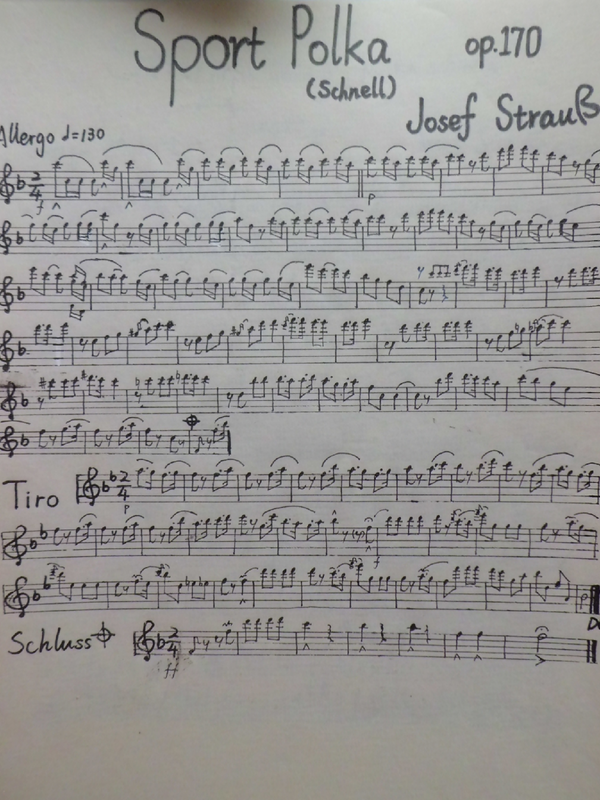 Sport Polka op.170
(Schnell)
Josef Strauß
Allergo ♩=130
2/4
f
p
Tiro
2/4
p
f
D
Schluss
2/4
ff